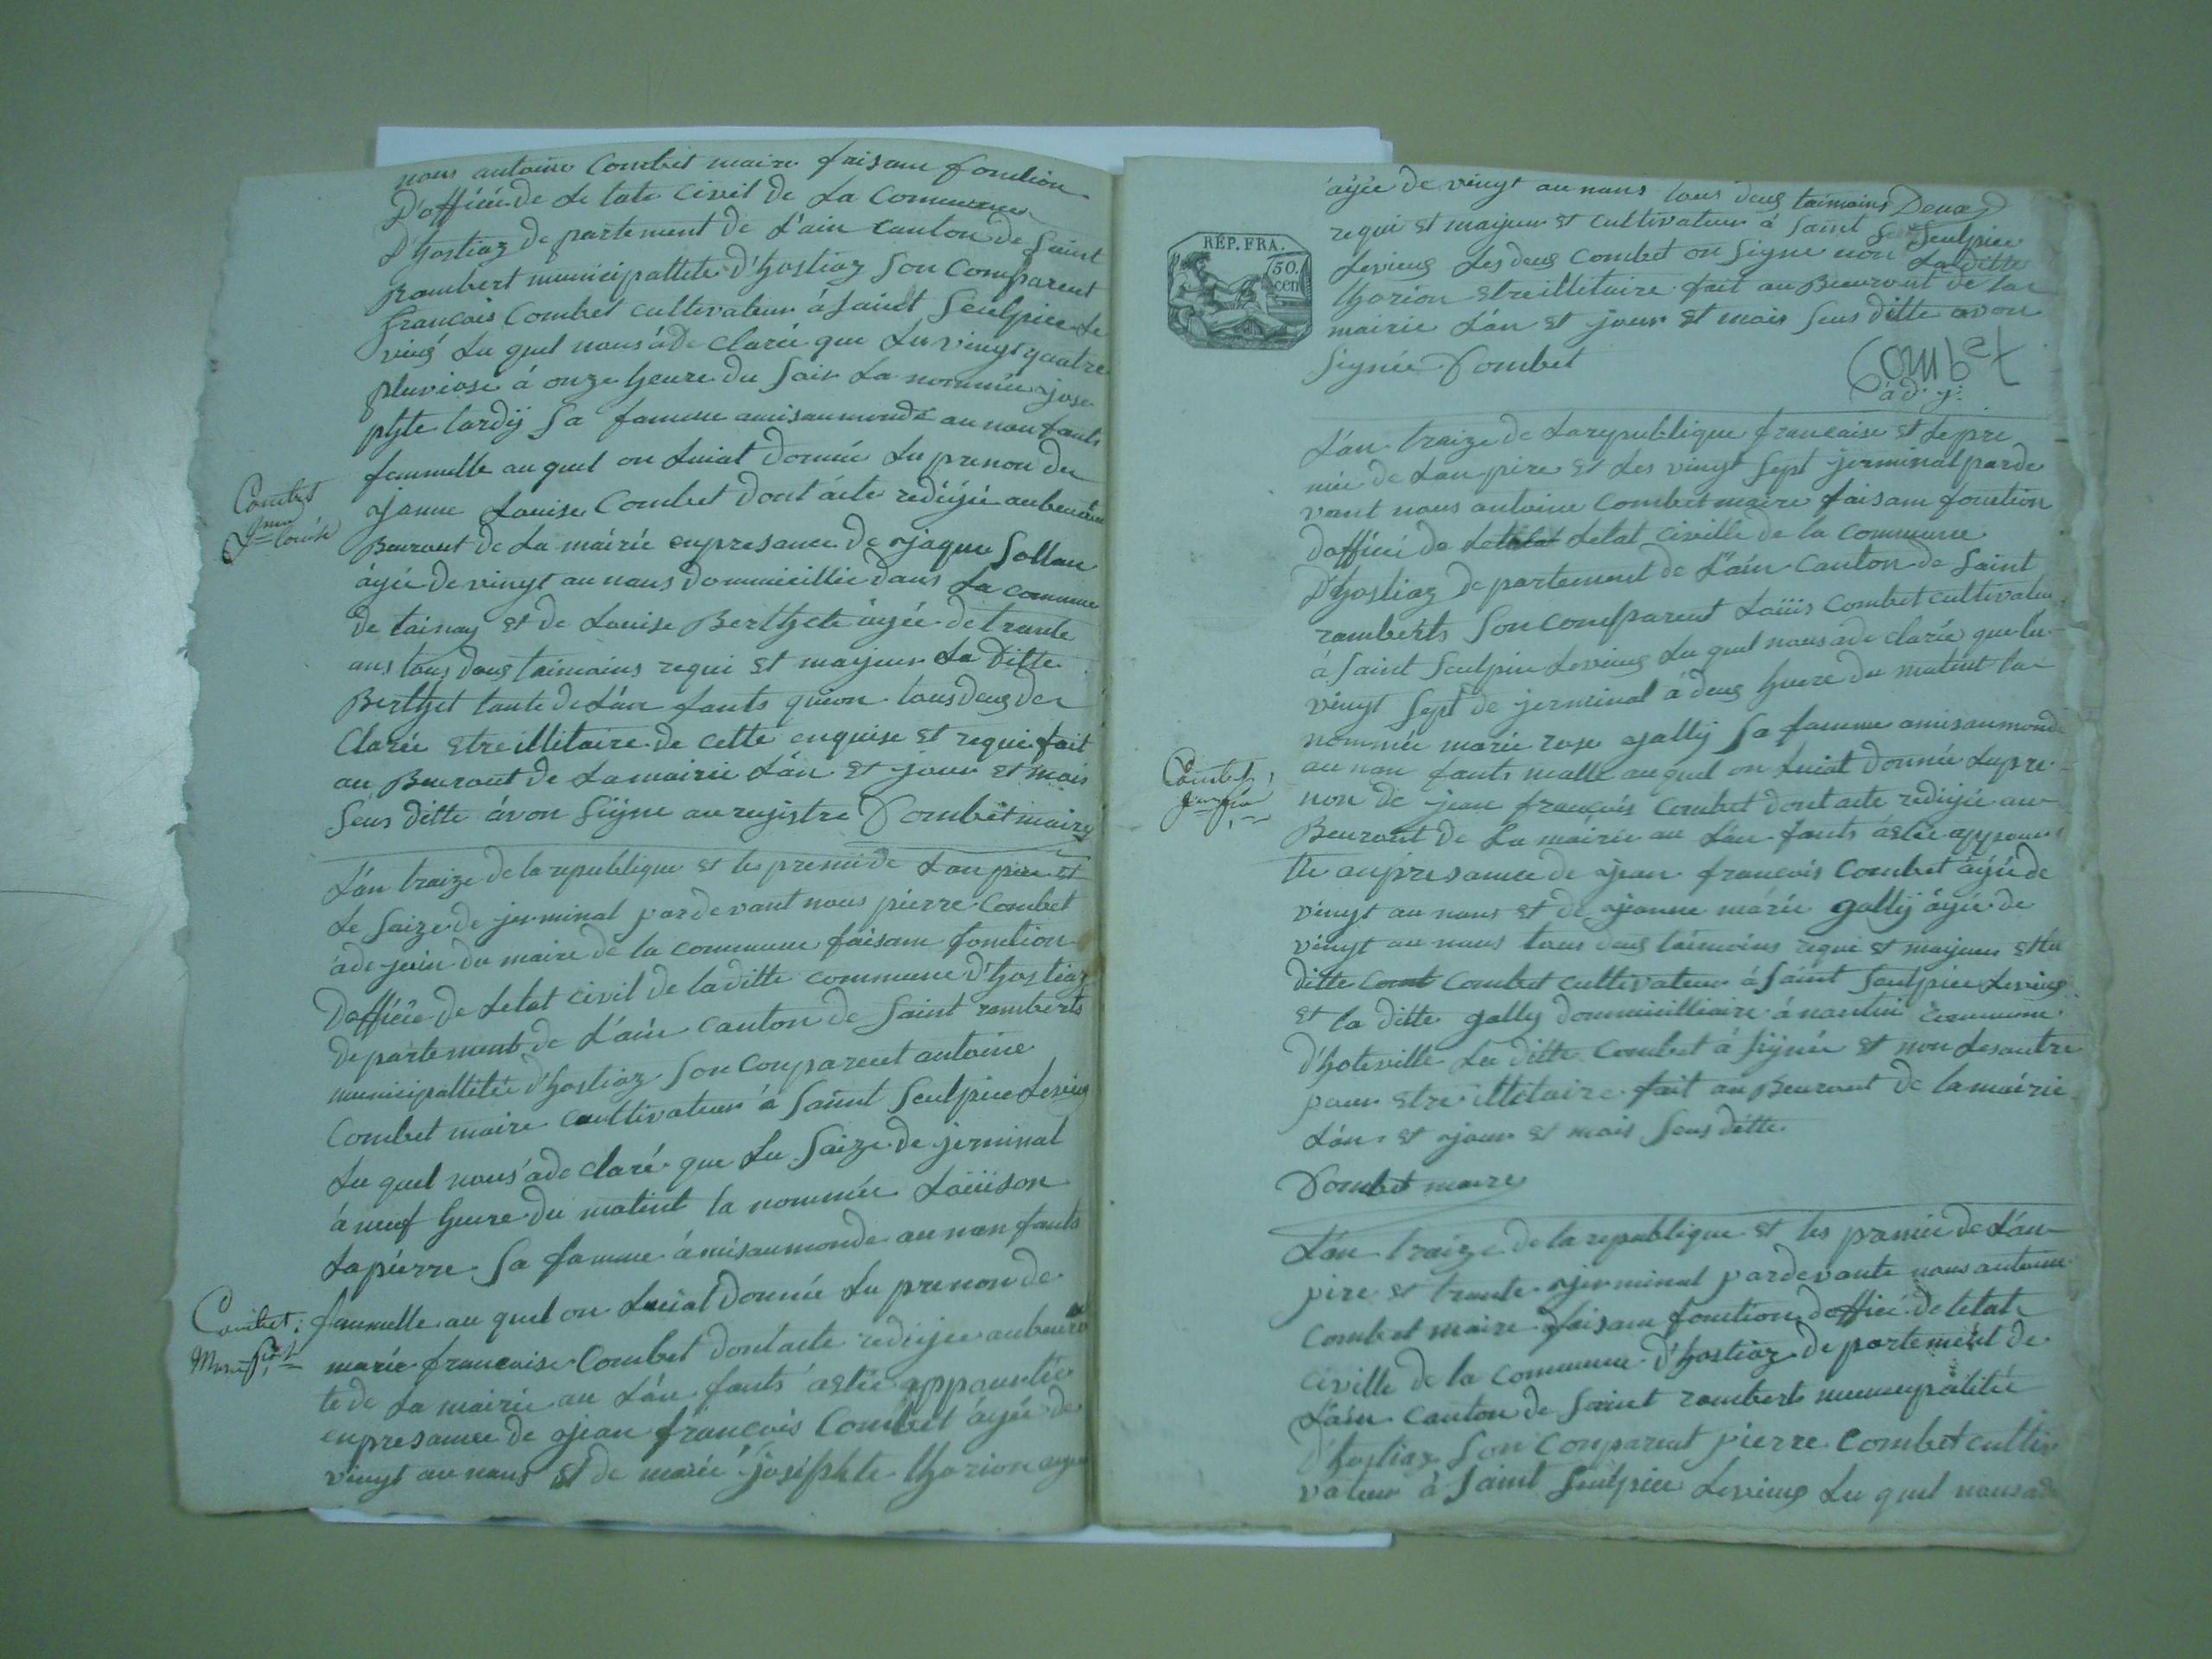 nous antoine Combet maire faisam fontion
D'officié de Le tate Civil de La Commune
D'hostiaz de partement de L'ain Canton de Saint
Rambert municipallité D'hostiaz Son Comparent
francois Combet cultivateur á Saint Seulpice Le
vieus Lu quel nous á de clarée que Lu vingt quatre
pluviose á onze heure du Soir La nommée jose
phte tardij Sa famme amisaumonde au nan fants
fammelle au quel on Luiat Donnée Lu prenon de
Combet
Jnne Louise
janne Louise Combet Dont ácte redigée au
Beuraut de La mairie enpresance de jaque Sollan
ágée de vingt au nans Dommicillie dans La commune
de tainay et de Louise Berthete ágée de trante
ans tous deus taimoins requi et majeur La Ditte
Berthet tante de L'án fants quion tous deus de
Clarée etre illitaire de cette enquise et requi fait
au Beuraut de La mairie L'án et jour et mois
Seus ditte ávon Signe au rejistre Combet maire
L'án traize de la republique et les premié de Lan pire et
Le Saize de jerminal pardevant nous pierre Combet
ade join du maire de la commune faisam fontion
D'officie de Letat civil de laditte commune D'hostiaz
departement de L'ain Canton de Saint ramberts
municipallitée D'hostiaz Son Conparent antoine
Combet maire cultivateur á Saint Seulpice Levieus
Lu quel nous á de claré que Lu Saize de jerminal
á neuf heure du matint la nommée Loüison
Lapierre Sa famme á mis au monde au nan fants
Combet
Marie Fçoise
fammelle au quel on Luiat Donnée Lu prenon de
marie francoise Combet Dont acte redigée au beurau
te de La mairie au L'án fants áetée appourtée
en presance de jean francois Combet ágée de
vingt au nans et de marie josephte thorion agée
RÉP. FRA.
50.
cen
ágée de vingt au nans tous deus taimoins Deus
requi et majeur et cultivateur á Saint Seulpice
Levieus Les deus Combet on Signe non La Ditte
thorion etre illitaire fait au Beuraut de la
mairie L'án et jour et mois Seus ditte avon
Signée Combet
Combet
ád. j.
L'án traize de La republique francaise et le pre
mié de Lan pire et Les vingt Sept jerminal parde
vant nous antoine Combet maire faisam fontion
D'officié de Letat civille de la Commune
D'hostiaz de partement de L'áin Canton de Saint
ramberts Son Comparent Loüis Combet cultivateu
á Saint Seulpice Levieus Lu quel nous a de clarée que Lu
vingt Sept de jerminal á deus heure du matint la
nommée marie rose gallij Sa famme amisaumonde
Combet
Jean fçois
au nan fants malle au quel on Luiat Donnée Lu pre
non de jean francois Combet Dont acte redigée au
Beuraut de La mairie au L'án fants áetée appour
tée an presance de jean francois Combet ágée de
vingt au nans et de janne marie gallij ágée de
vingt au nans tous deus taimoins requi et majeur et Lu
ditte Comb Combet cultivateur á Saint Seulpice Levieus
et la ditte gally Dommicilliaire á nantui commune
D'hoteville Lu ditte Combet á Signée et non Les autre
pour etre illitaire fait au Beuraut de la mairie
L'án et jour et mois Seus ditte
Combet maire
L'án traize de la republique et les premié de L'án
pire et trante jerminal pardevante nous antoine
Combet maire faisam fontion D'officié de letat
civille de la Commune D'hostiaz de partement de
L'áin Canton de Saint ramberts municipalitée
D'hostiaz Son Conparent pierre Combet cultiv
vateur á Saint Seulpice Levieus Lu quel nous a de